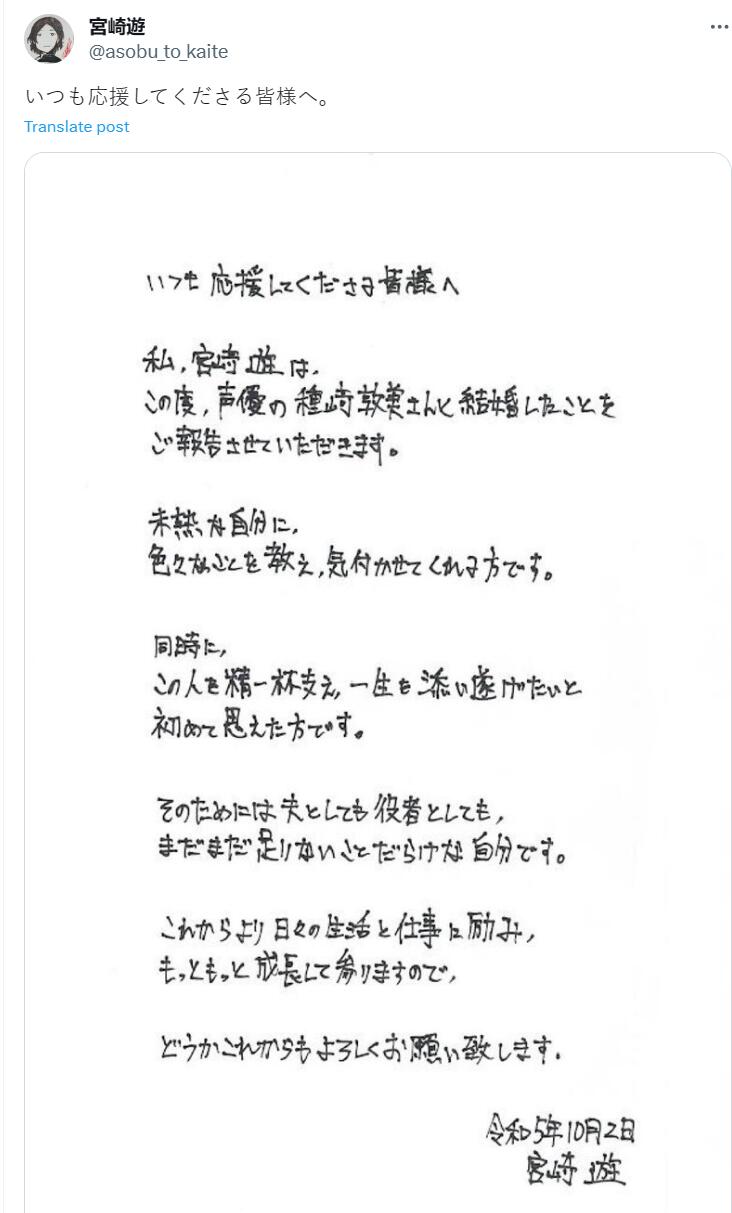 宮崎遊
@asobu_to_kaite
いつも応援してくださる皆様へ。
Translate post
いつも応援してくださる皆様へ
私、宮崎遊は、
この度、声優の種﨑敦美さんと結婚したことを
ご報告させていただきます。
未熟な自分に、
色々なことを教え、気付かせてくれる方です。
同時に、
この人を精一杯支え、一生を添い遂げたいと
初めて思えた方です。
そのためには夫としても役者としても、
まだまだ足りないことだらけな自分です。
これからより日々の生活と仕事に励み、
もっともっと成長して参りますので、
どうかこれからもよろしくお願い致します。
令和5年10月2日
宮崎遊